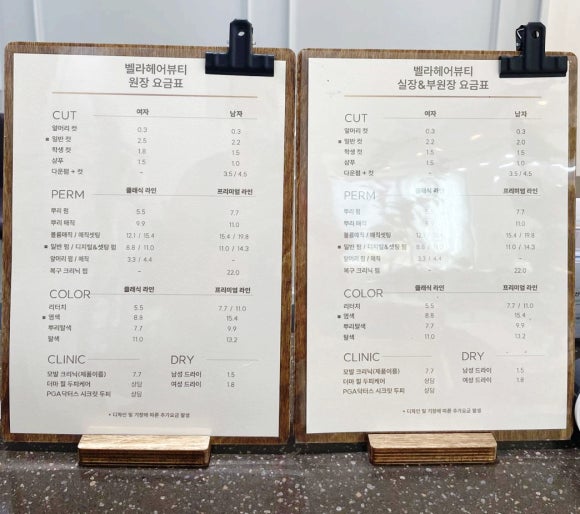 벨라헤어뷰티
원장 요금표
CUT 여자 남자
앞머리 컷 0.3 0.3
일반 컷 2.5 2.2
학생 컷 1.8 1.5
샴푸 1.5 1.0
다운펌 + 컷 - 3.5 / 4.5
PERM 클래식 라인 프리미엄 라인
뿌리 펌 5.5 7.7
뿌리 매직 9.9 11.0
볼륨매직 / 매직셋팅 12.1 / 15.4 15.4 / 19.8
일반 펌 / 디지털&셋팅 펌 8.8 / 11.0 11.0 / 14.3
앞머리 펌 / 매직 3.3 / 4.4
복구 크리닉 펌 - 22.0
COLOR 클래식 라인 프리미엄 라인
리터치 5.5 7.7 / 11.0
염색 8.8 15.4
뿌리탈색 7.7 9.9
탈색 11.0 13.2
CLINIC DRY
모발 크리닉(제품이름) 7.7 남성 드라이 1.5
더마 힐 두피케어 상담 여성 드라이 1.8
PGA닥터스 시크릿 두피 상담
* 디자인 및 기장에 따른 추가요금 발생
벨라헤어뷰티
실장&부원장 요금표
CUT 여자 남자
앞머리 컷 0.3 0.3
일반 컷 2.2 2.0
학생 컷 1.5 1.5
샴푸 1.5 1.0
다운펌 + 컷 - 3.5 / 4.5
PERM 클래식 라인 프리미엄 라인
뿌리 펌 5.5 7.7
뿌리 매직 9.9 11.0
볼륨매직 / 매직셋팅 12.1 / 15.4 15.4 / 19.8
일반 펌 / 디지털&셋팅 펌 8.8 / 11.0 11.0 / 14.3
앞머리 펌 / 매직 3.3 / 4.4
복구 크리닉 펌 - 22.0
COLOR 클래식 라인 프리미엄 라인
리터치 5.5 7.7 / 11.0
염색 8.8 15.4
뿌리탈색 7.7 9.9
탈색 11.0 13.2
CLINIC DRY
모발 크리닉(제품이름) 7.7 남성 드라이 1.5
더마 힐 두피케어 상담 여성 드라이 1.8
PGA닥터스 시크릿 두피 상담
* 디자인 및 기장에 따른 추가요금 발생